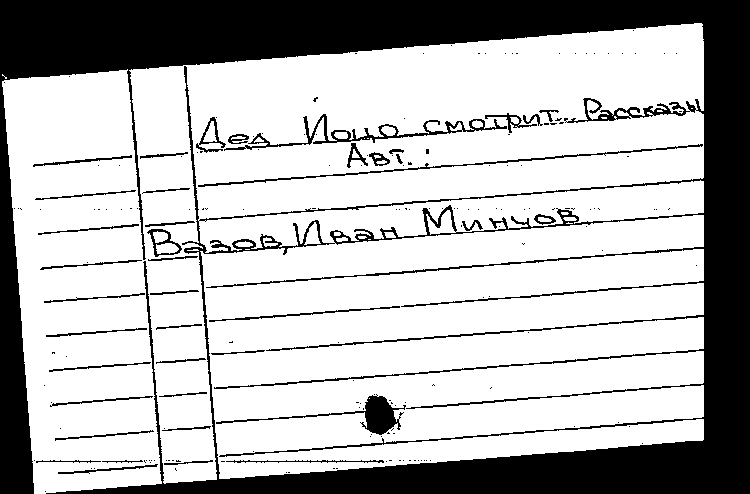 Дед Йоцо смотрит... Рассказы
Авт.:
Вазов, Иван Минчов